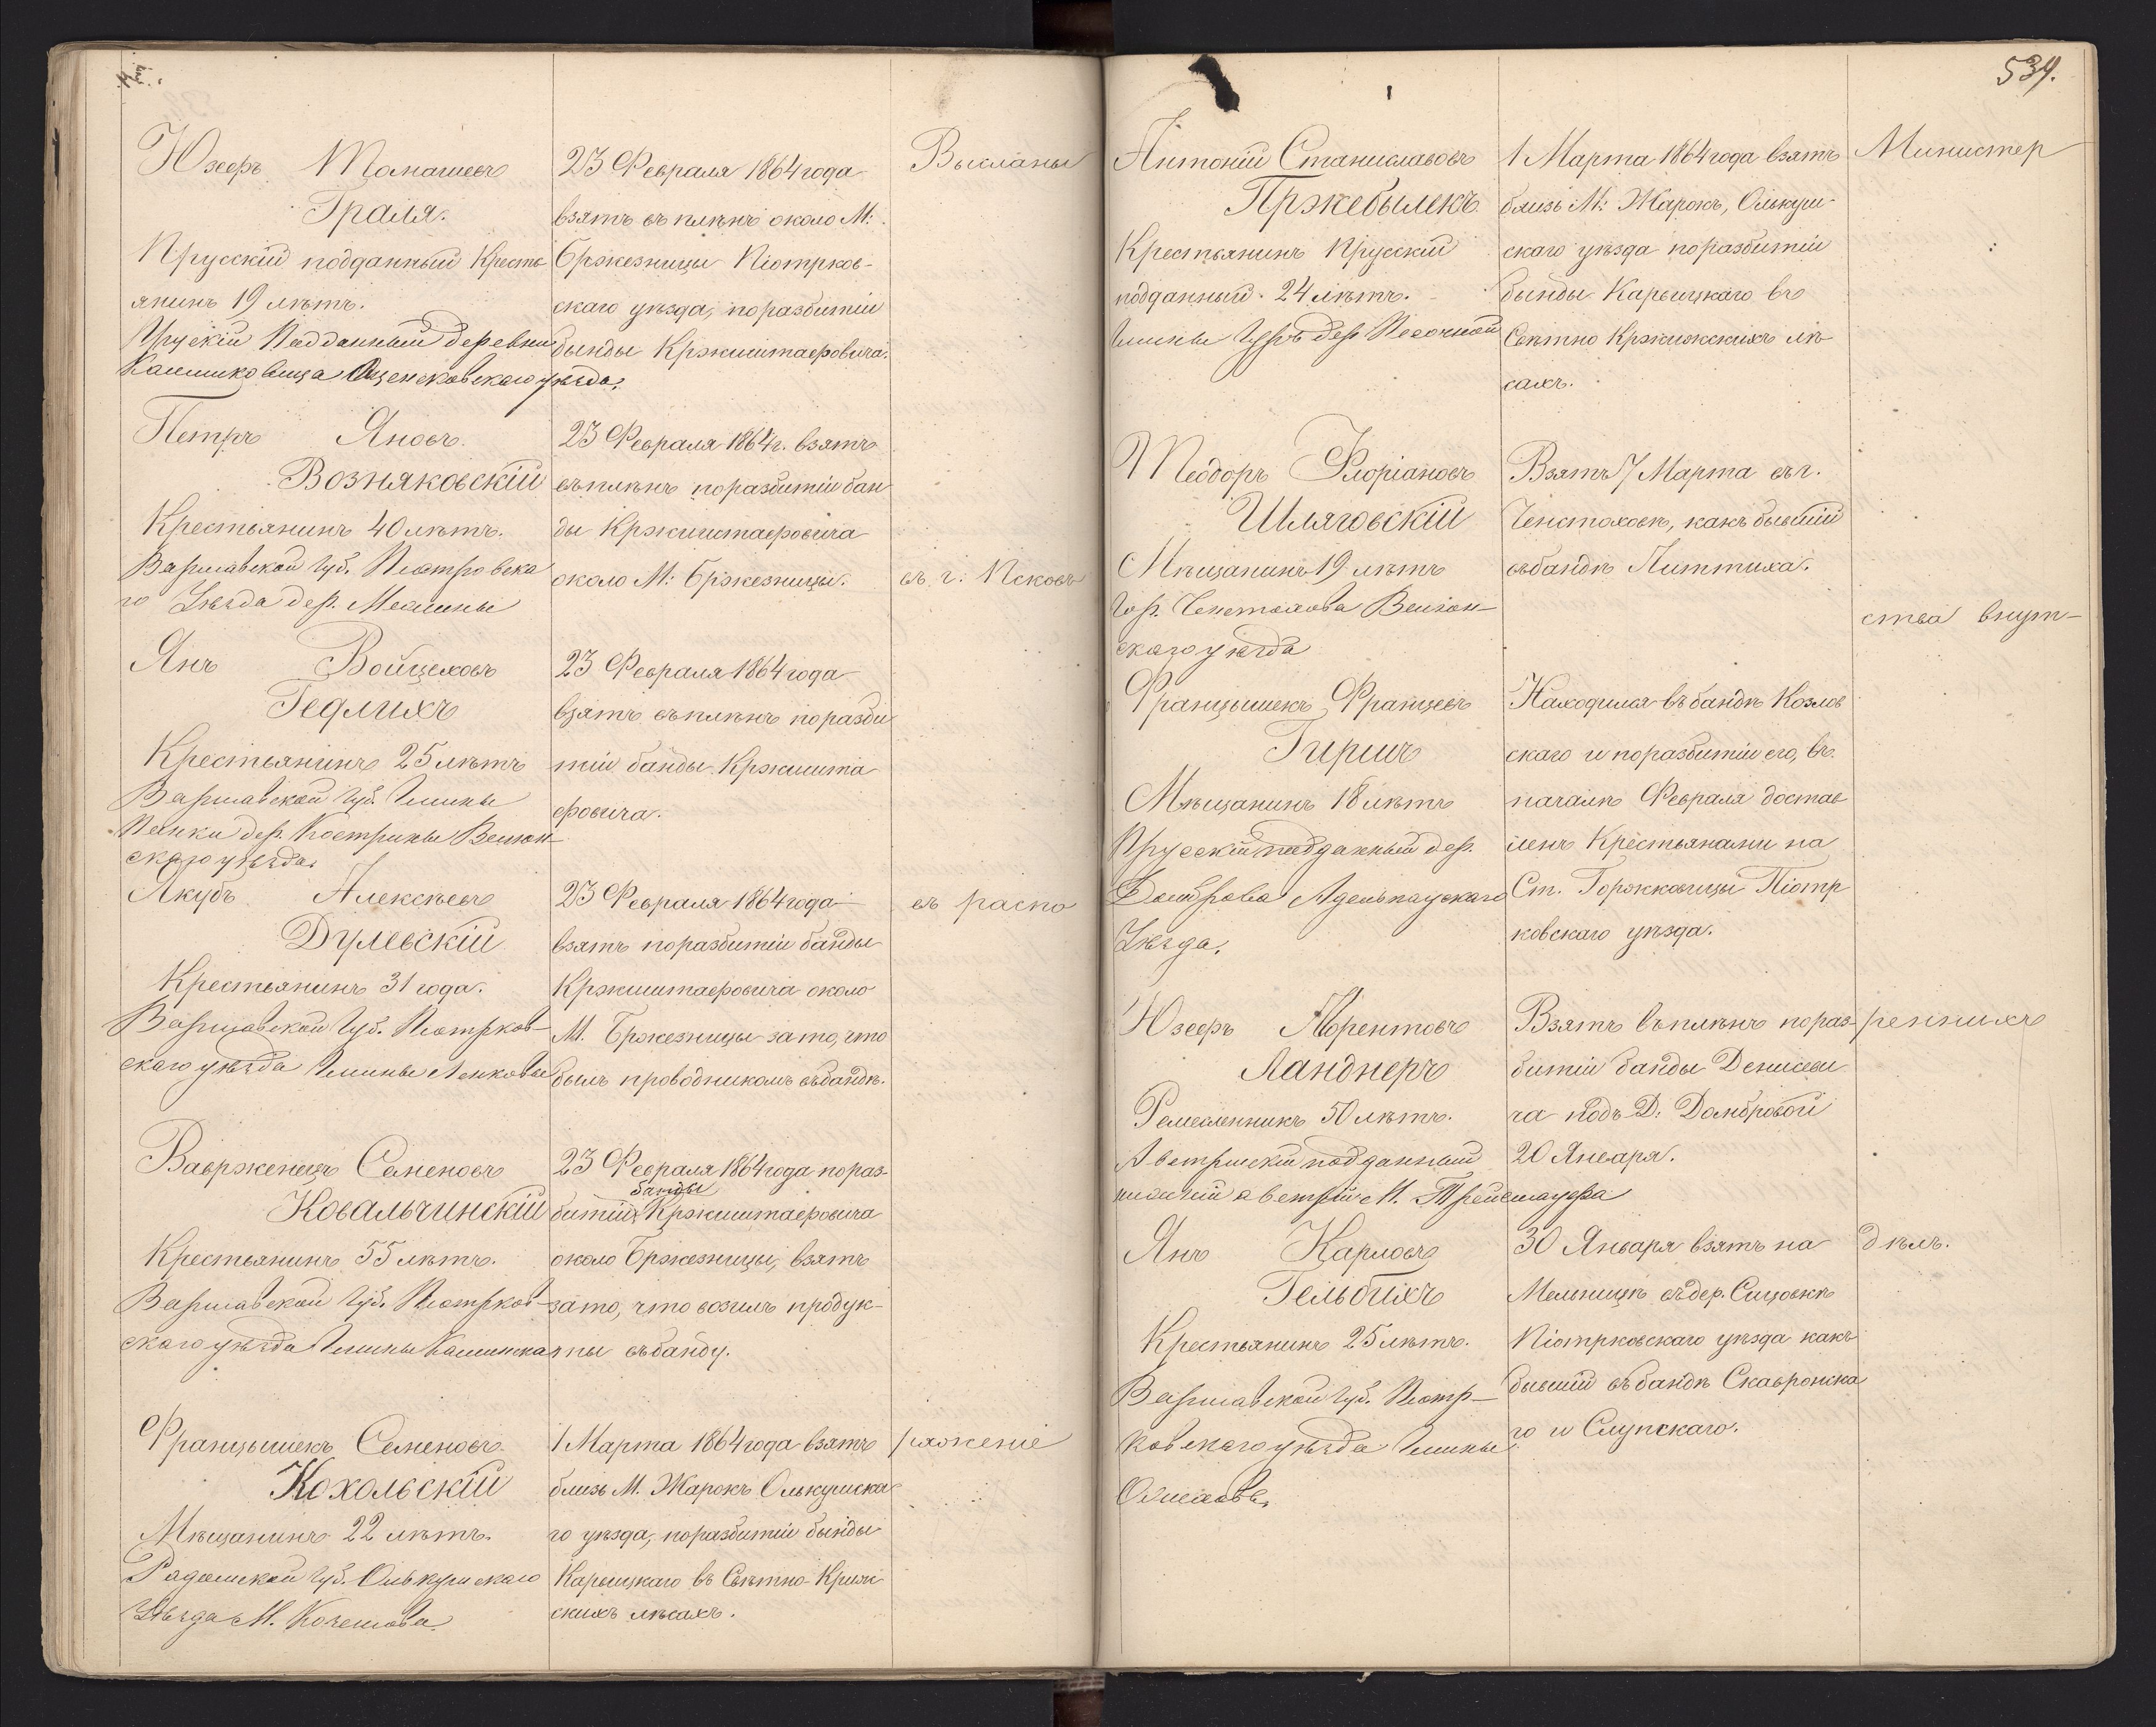 534.
Юзефъ Томашевъ
Граля.
Прусскій подданный Кресть
янинъ 19 лѣтъ.
Прускій Подданный деревни
уѣзда.
23 Февраля 1864 года
взятъ въ плѣнъ около М:
Бржезницы Піотрков-
скаго уѣзда, по разбитіи
банды Кржиштафовича.
Высланы
Петръ Яновъ.
Возняковскій
Крестьянинъ 40 лѣтъ.
Варшавской Губ. Піотровска
го Уѣзда дер.
23 Февраля 1864 г. взятъ
въ плѣнъ по разбитіи бан
ды Кржиштафовича
около М: Бржезницы.
въ г: Псковъ
Янъ Войцеховъ
Гедлихъ
Крестьянинъ 25 лѣтъ
Варшавской Губ. Гмины
Панки дер. Кострины Велюн-
скаго уѣзда.
23 Февраля 1864 года
взятъ въ плѣнъ по разби
тіи банды Кржишта
фовича.
Якубъ Алексѣевъ
Дулевскій
Крестьянинъ 31 года.
Варшавской Губ. Піотрков-
скаго уѣзда Гмины Ленковы
23 Февраля 1864 года
взятъ по разбитіи банды
Кржиштафовича около
М. Бржезницы за то, что
былъ проводникомъ въ бандѣ.
въ распо
Вавржепецъ Семеновъ
Ковальчинскій
Крестьянинъ 55 лѣтъ.
Варшавской Губ. Піотрков-
скаго уѣзда Гмины
23 Февраля 1864 года по раз-
банды
битіи Кржиштафовича
около Бржезницы, взятъ
за то, что возилъ продук-
ты въ банду.
Францышекъ Семеновъ
Кохольскій
Мѣщанинъ 22 лѣтъ.
Радомской Губ. Олькушскаго
Уѣзда М.
1 Марта 1864 года взятъ
близь М. Жарокъ Олькушска
го уѣзда, по разбитіи банды
Карыцкаго въ Свѣтно-Криж
скихъ лѣсахъ.
ряженіе
Антоній Станиславовъ
Пржебылекъ
Крестьянинъ Прусскій
подданный. 24 лѣтъ.
Гмины дер.
1 Марта 1864 года взятъ
близь М: Жарокъ, Олькуш-
скаго уѣзда по разбитіи
банды Карыцкаго въ
Свѣтно Кржижскихъ лѣ
сахъ.
Министер
Теодоръ Флоріановъ
Шляговскій
Мѣщанинъ 19 лѣтъ
Гор. Ченстохова Велюн-
скаго уѣзда
Взятъ 7 Марта въ г.
Ченстоховѣ, какъ бывшій
въ бандѣ Литтиха.
ства внут-
Францышекъ Францевъ
Гиршъ
Мѣщанинъ 18 лѣтъ
Прусскій подданный дер.
Домброва
Уѣзда.
Находился въ бандѣ Козлов
скаго и по разбитіи его, въ
началѣ Февраля достав
ленъ Крестьянами на
Ст. Горжковицы Піотр
ковскаго уѣзда.
Юзефъ Лорентовъ
Ланднеръ
Ремесленникъ 50 лѣтъ.
Австрійскій подданный
М.
Взятъ въ плѣнъ по раз-
битіи банды Денисеви
ча подъ Д: Домбровой
20 Января.
реннихъ
Янъ Карловъ
Гельбихъ
Крестьянинъ 25 лѣтъ.
Варшавской Губ. Піотр-
ковскаго уѣзда Гмины
30 Января взятъ на
Мельницѣ въ дер. Сицовкѣ
Піотрковскаго уѣзда какъ
бывшій въ бандѣ Скавронска
го и Слупскаго.
дѣлъ.